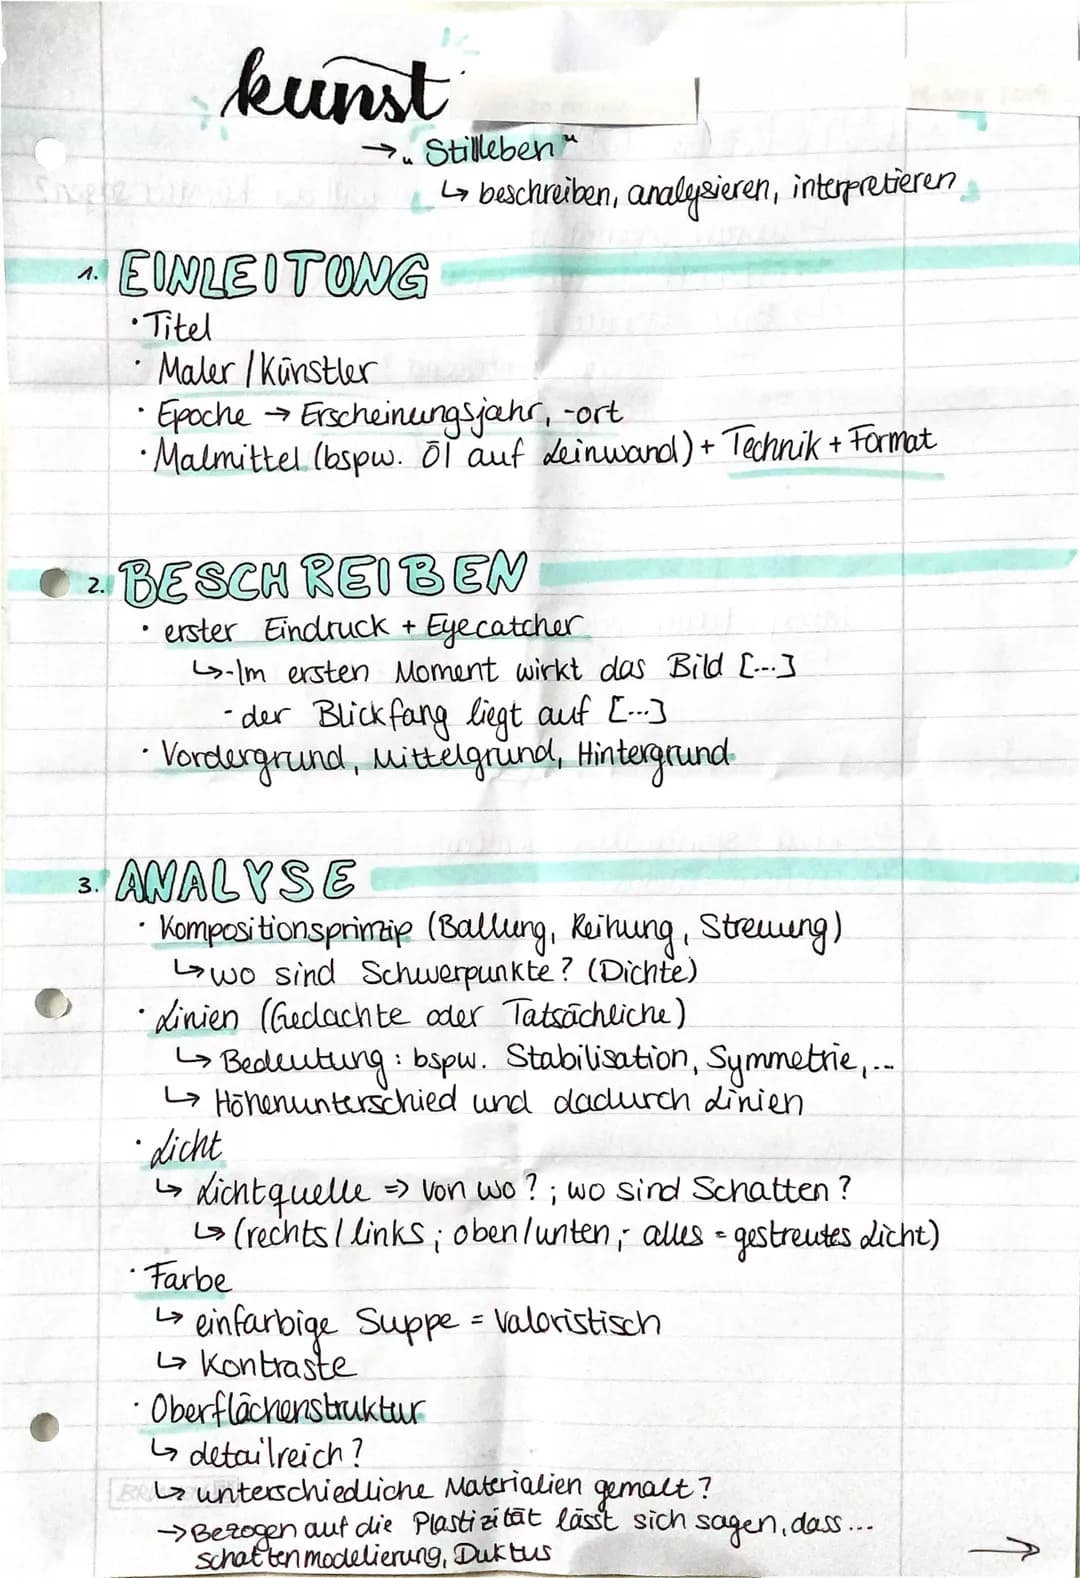 kunst
→ „Stilleben"
↳ beschreiben, analysieren, interpretieren
1. EINLEITUNG
· Titel
· Maler / Künstler
· Epoche → Erscheinungsjahr, -ort
· Malmittel (bspw. Öl auf Leinwand) + Technik + Format
2. BESCHREIBEN
· erster Eindruck + Eyecatcher
↳ - Im ersten Moment wirkt das Bild [...]
- der Blickfang liegt auf [...]
· Vordergrund, Mittelgrund, Hintergrund
3. ANALYSE
· Kompositionsprinzip (Ballung, Reihung, Streuung)
↳ wo sind Schwerpunkte? (Dichte)
· Linien (Gedachte oder Tatsächliche)
↳ Bedeutung: bspw. Stabilisation, Symmetrie,...
↳ Höhenunterschied und dadurch Linien
· Licht
↳ Lichtquelle => von wo?; wo sind Schatten?
↳ (rechts / links; oben/unten; alles = gestreutes Licht)
· Farbe
↳ einfarbige Suppe = Valoristisch
↳ Kontraste
· Oberflächenstruktur
↳ detailreich?
↳ unterschiedliche Materialien gemalt?
→ Bezogen auf die Plastizität lässt sich sagen, dass...
Schattenmodelierung, Duktus →